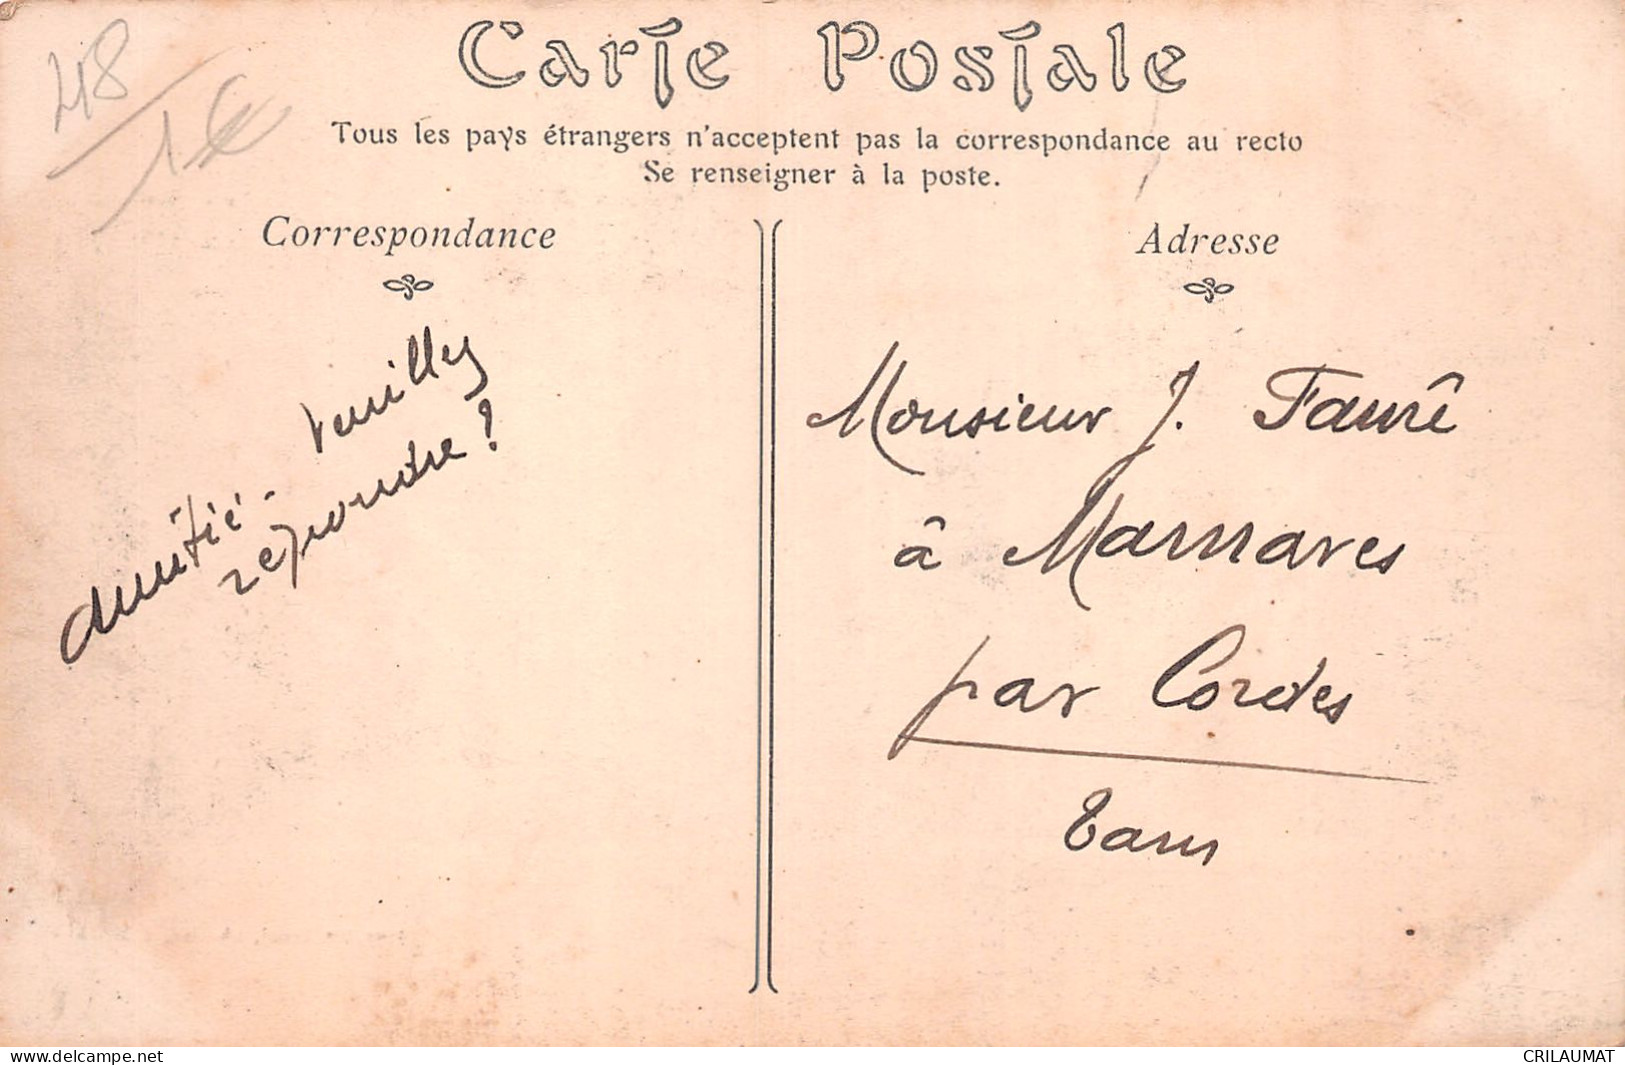 48
1€
Carte Postale
Tous les pays étrangers n'acceptent pas la correspondance au recto
Se renseigner à la poste.
Correspondance
Adresse
amitié - veuillez
répondre ?
Monsieur J. Faurê
â Marnaves
par Cordes
Tarn
delcampe.net
CRILAUMAT